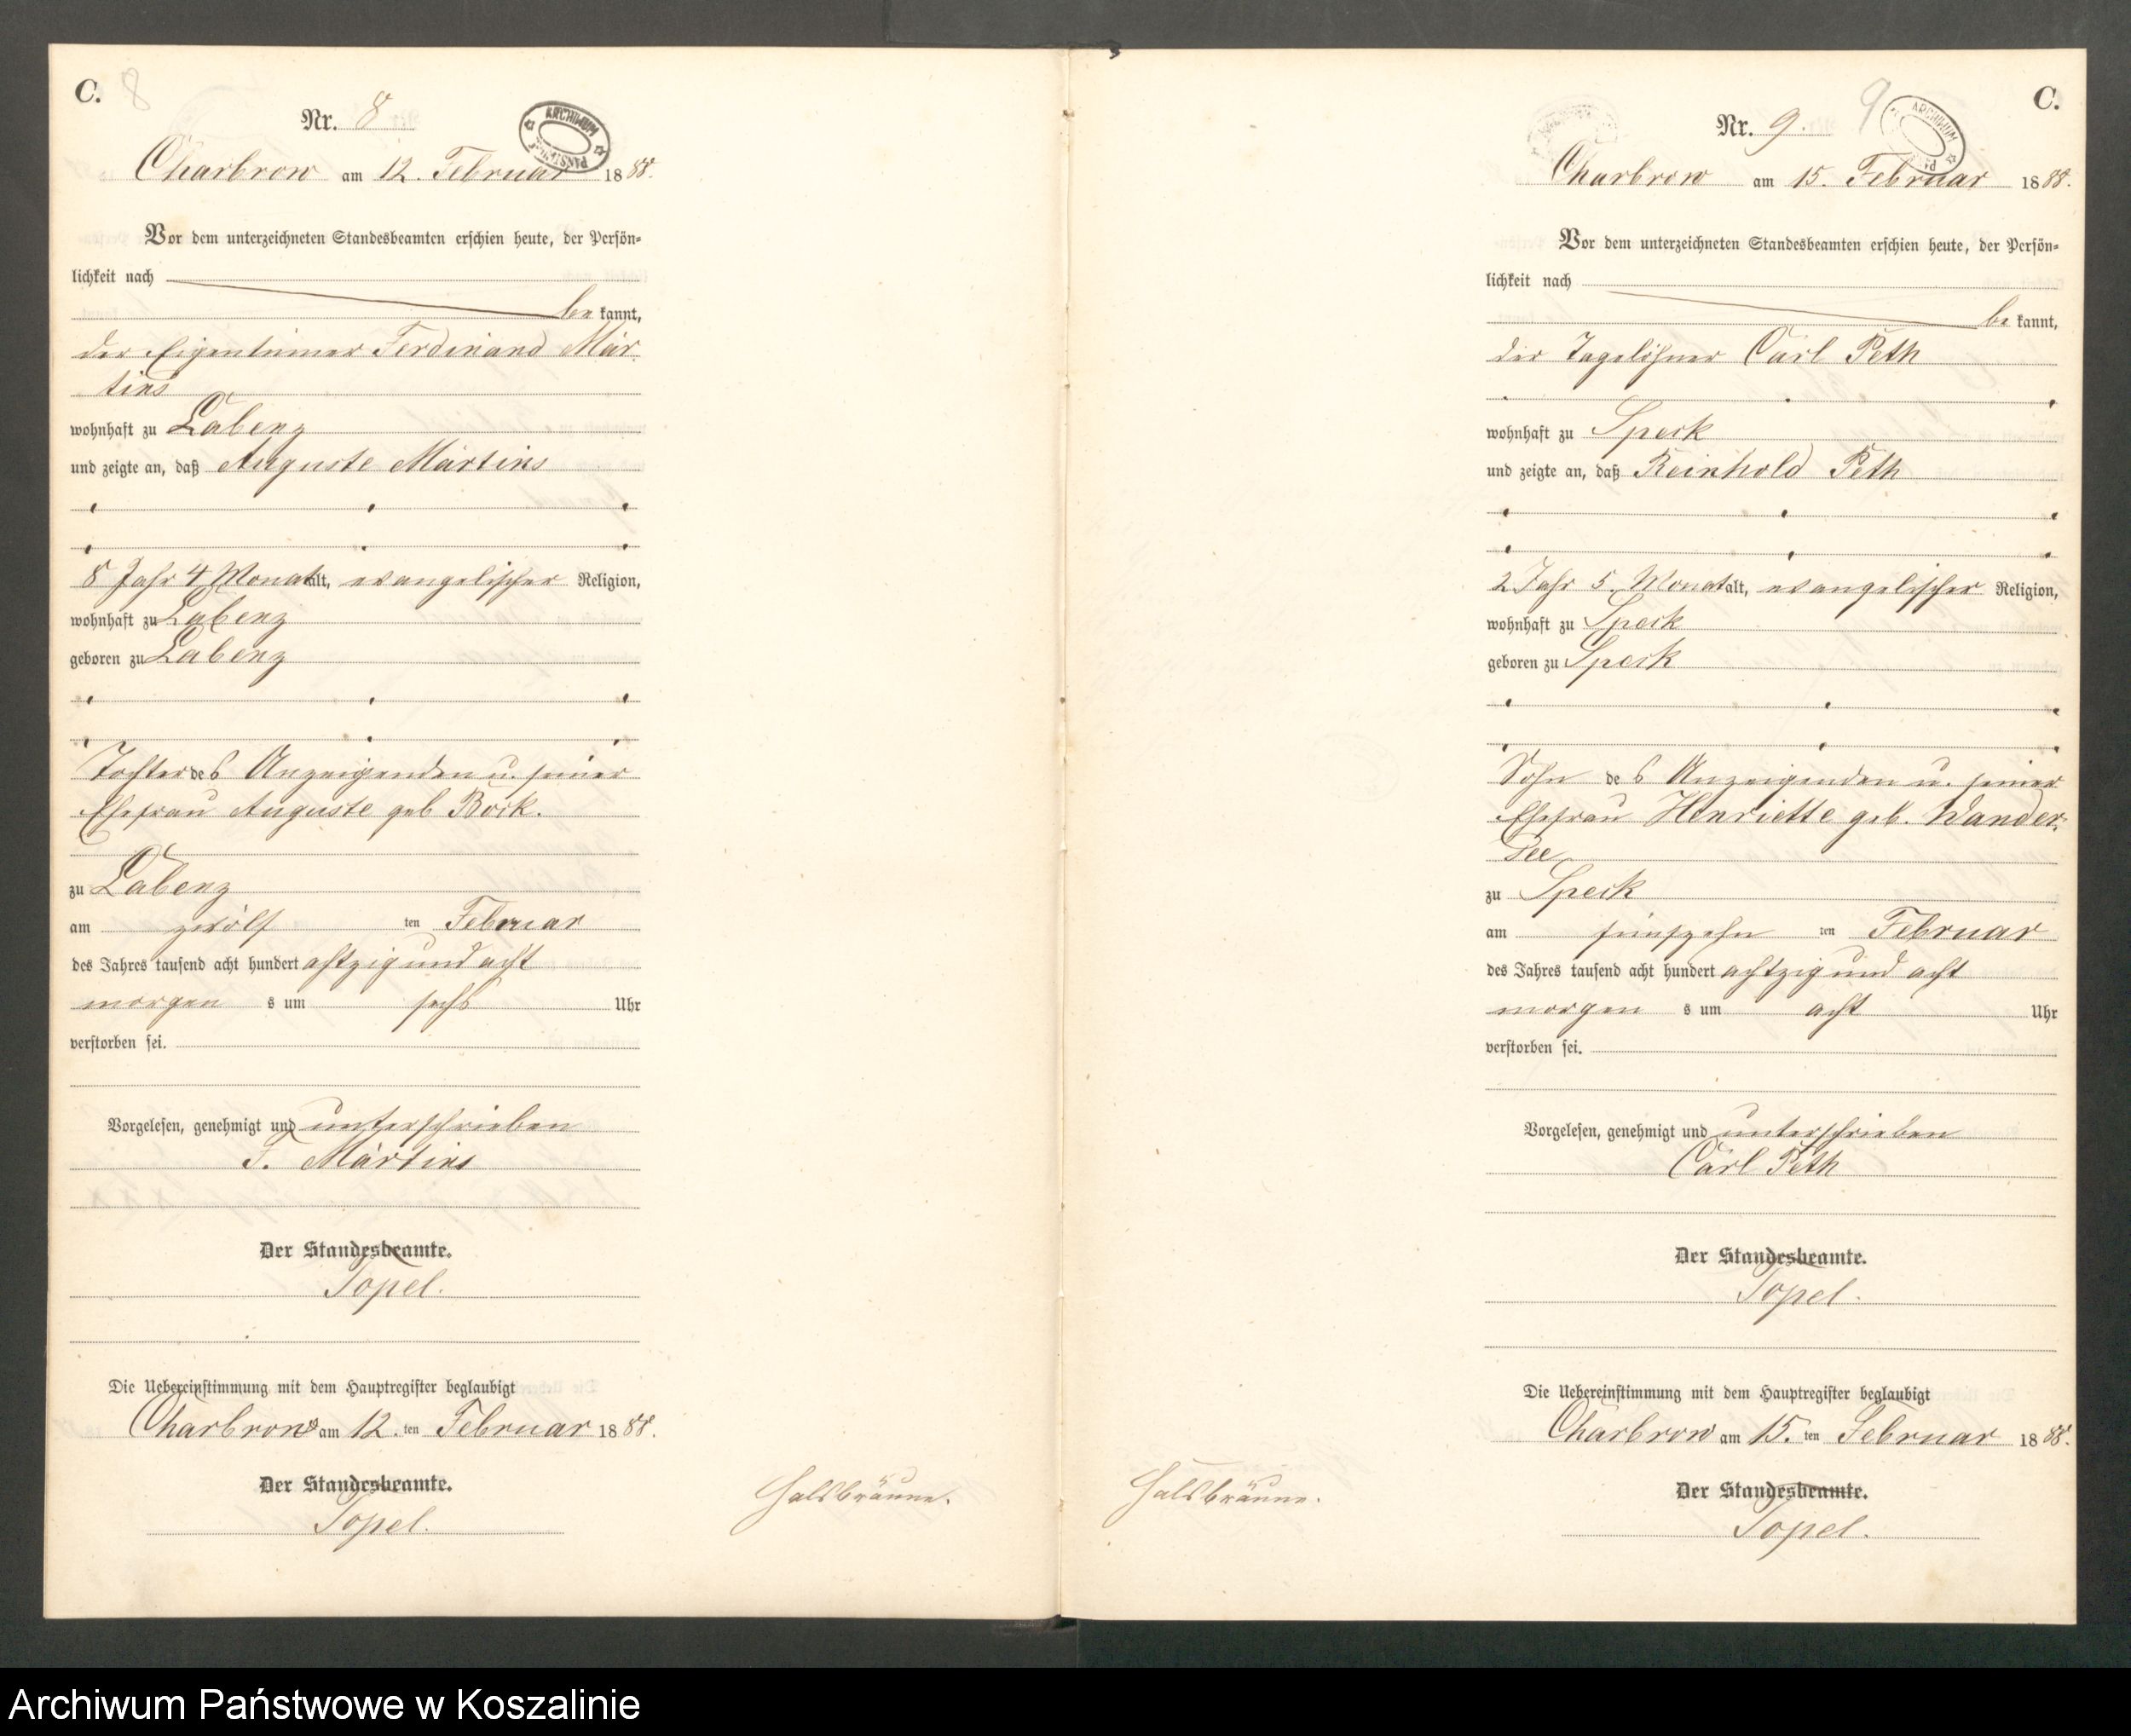 C. 8
Nr. 8
ARCHIWUM PAŃSTWOWE
Charbrow am 12. Februar 1888.
Vor dem unterzeichneten Standesbeamten erschien heute, der Persön-
lichkeit nach
be kannt,
der Eigentümer Ferdinand Mar-
tins
wohnhaft zu Labenz
und zeigte an, daß Auguste Martins
8 Jahr 4 Monat alt, evangelischer Religion,
wohnhaft zu Labenz
geboren zu Labenz
Tochter des Anzeigenden u. seiner
Ehefrau Auguste geb Bock.
zu Labenz
am zwölf ten Februar
des Jahres tausend acht hundert achtzig und acht
morgen s um sechs Uhr
verstorben sei.
Vorgelesen, genehmigt und unterschrieben
F. Martins
Der Standesbeamte.
Topel.
Die Uebereinstimmung mit dem Hauptregister beglaubigt
Charbrow am 12. ten Februar 1888.
Der Standesbeamte.
Topel.
Halsbräune.
9 C.
Nr. 9.
ARCHIWUM
Charbrow am 15. Februar 1888.
Vor dem unterzeichneten Standesbeamten erschien heute, der Persön-
lichkeit nach
be kannt,
der Tagelöhner Carl Peth
wohnhaft zu Speck
und zeigte an, daß Reinhold Peth
2 Jahr 5 Monat alt, evangelischer Religion,
wohnhaft zu Speck
geboren zu Speck
Sohn des Anzeigenden u. seiner
Ehefrau Henriette geb. Wander-
see
zu Speck
am fünfzehn ten Februar
des Jahres tausend acht hundert achtzig und acht
morgen s um acht Uhr
verstorben sei.
Vorgelesen, genehmigt und unterschrieben
Carl Peth
Der Standesbeamte.
Topel.
Die Uebereinstimmung mit dem Hauptregister beglaubigt
Charbrow am 15. ten Februar 1888.
Der Standesbeamte.
Topel.
Halsbräune.
Archiwum Państwowe w Koszalinie